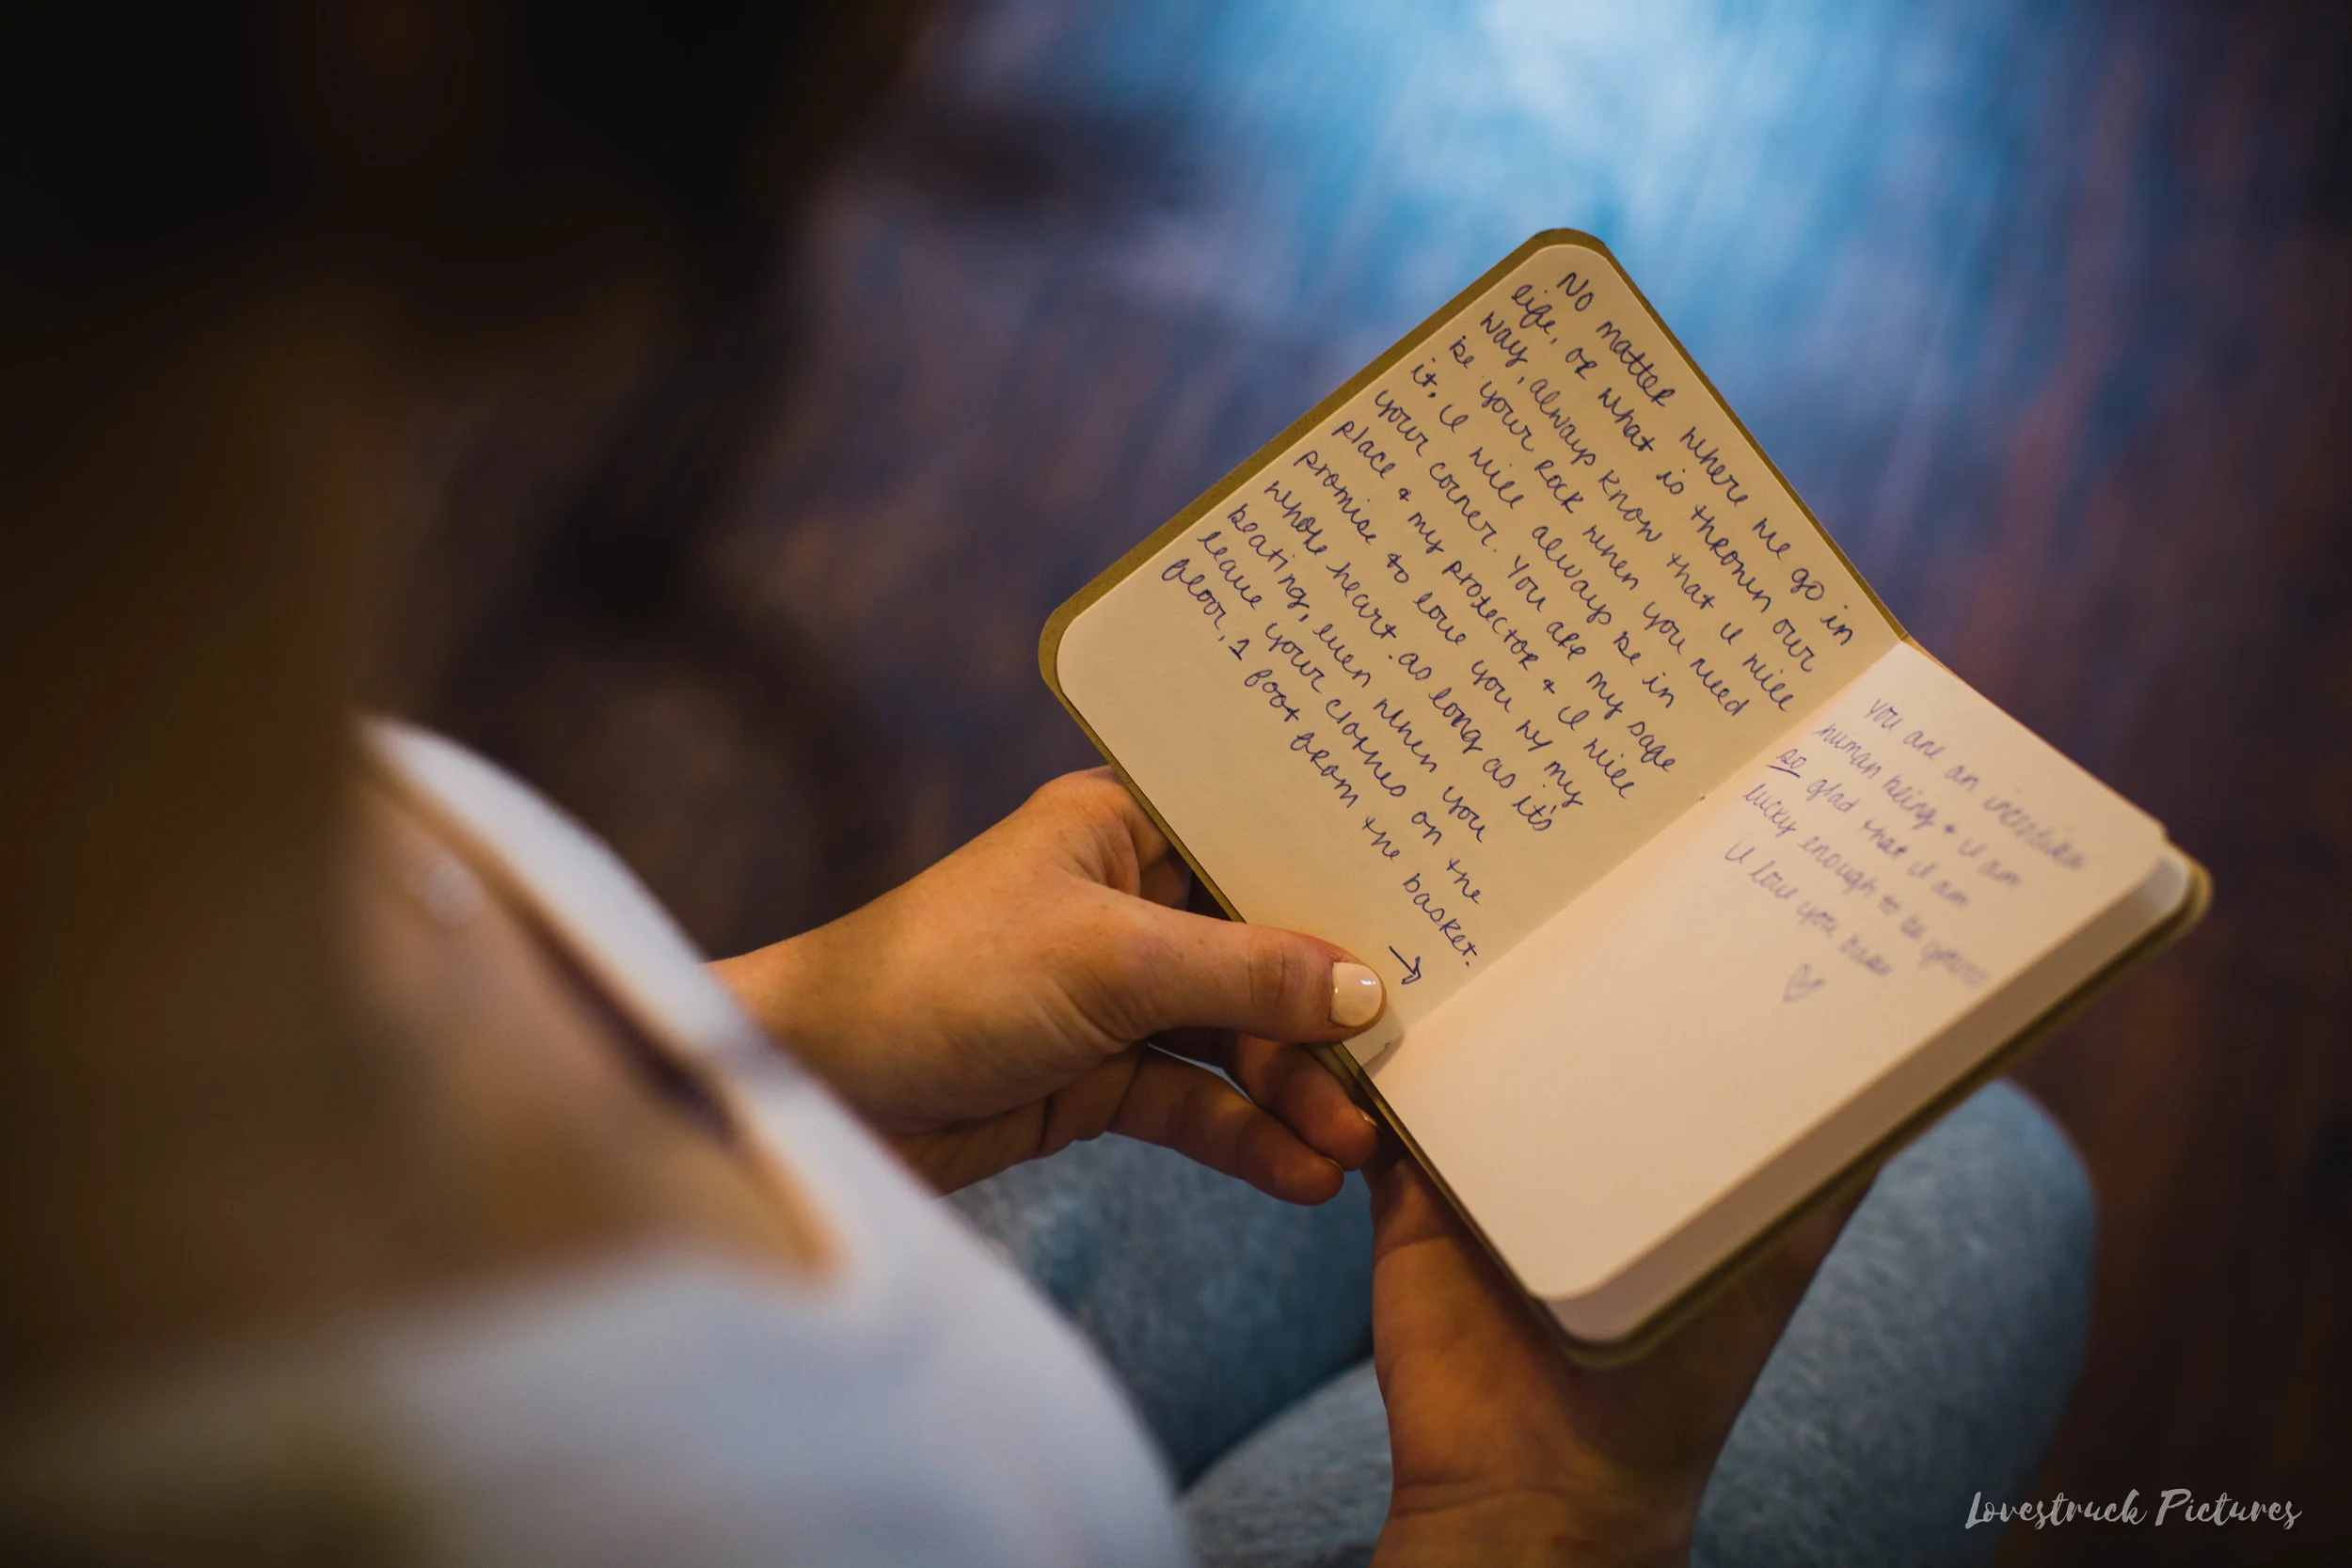 No matter where we go in
life, or what is thrown our
way, always know that I will
be your rock when you need
it. I will always be in
your corner. You are my safe
place & my protector & I will
promise to love you w/ my
whole heart as long as it's
beating, even when you
leave your clothes on the
floor, 1 foot from the basket.
→
you are an incredible
human being & I am
so glad that I am
lucky enough to be yours
I love you
Lovestruck Pictures